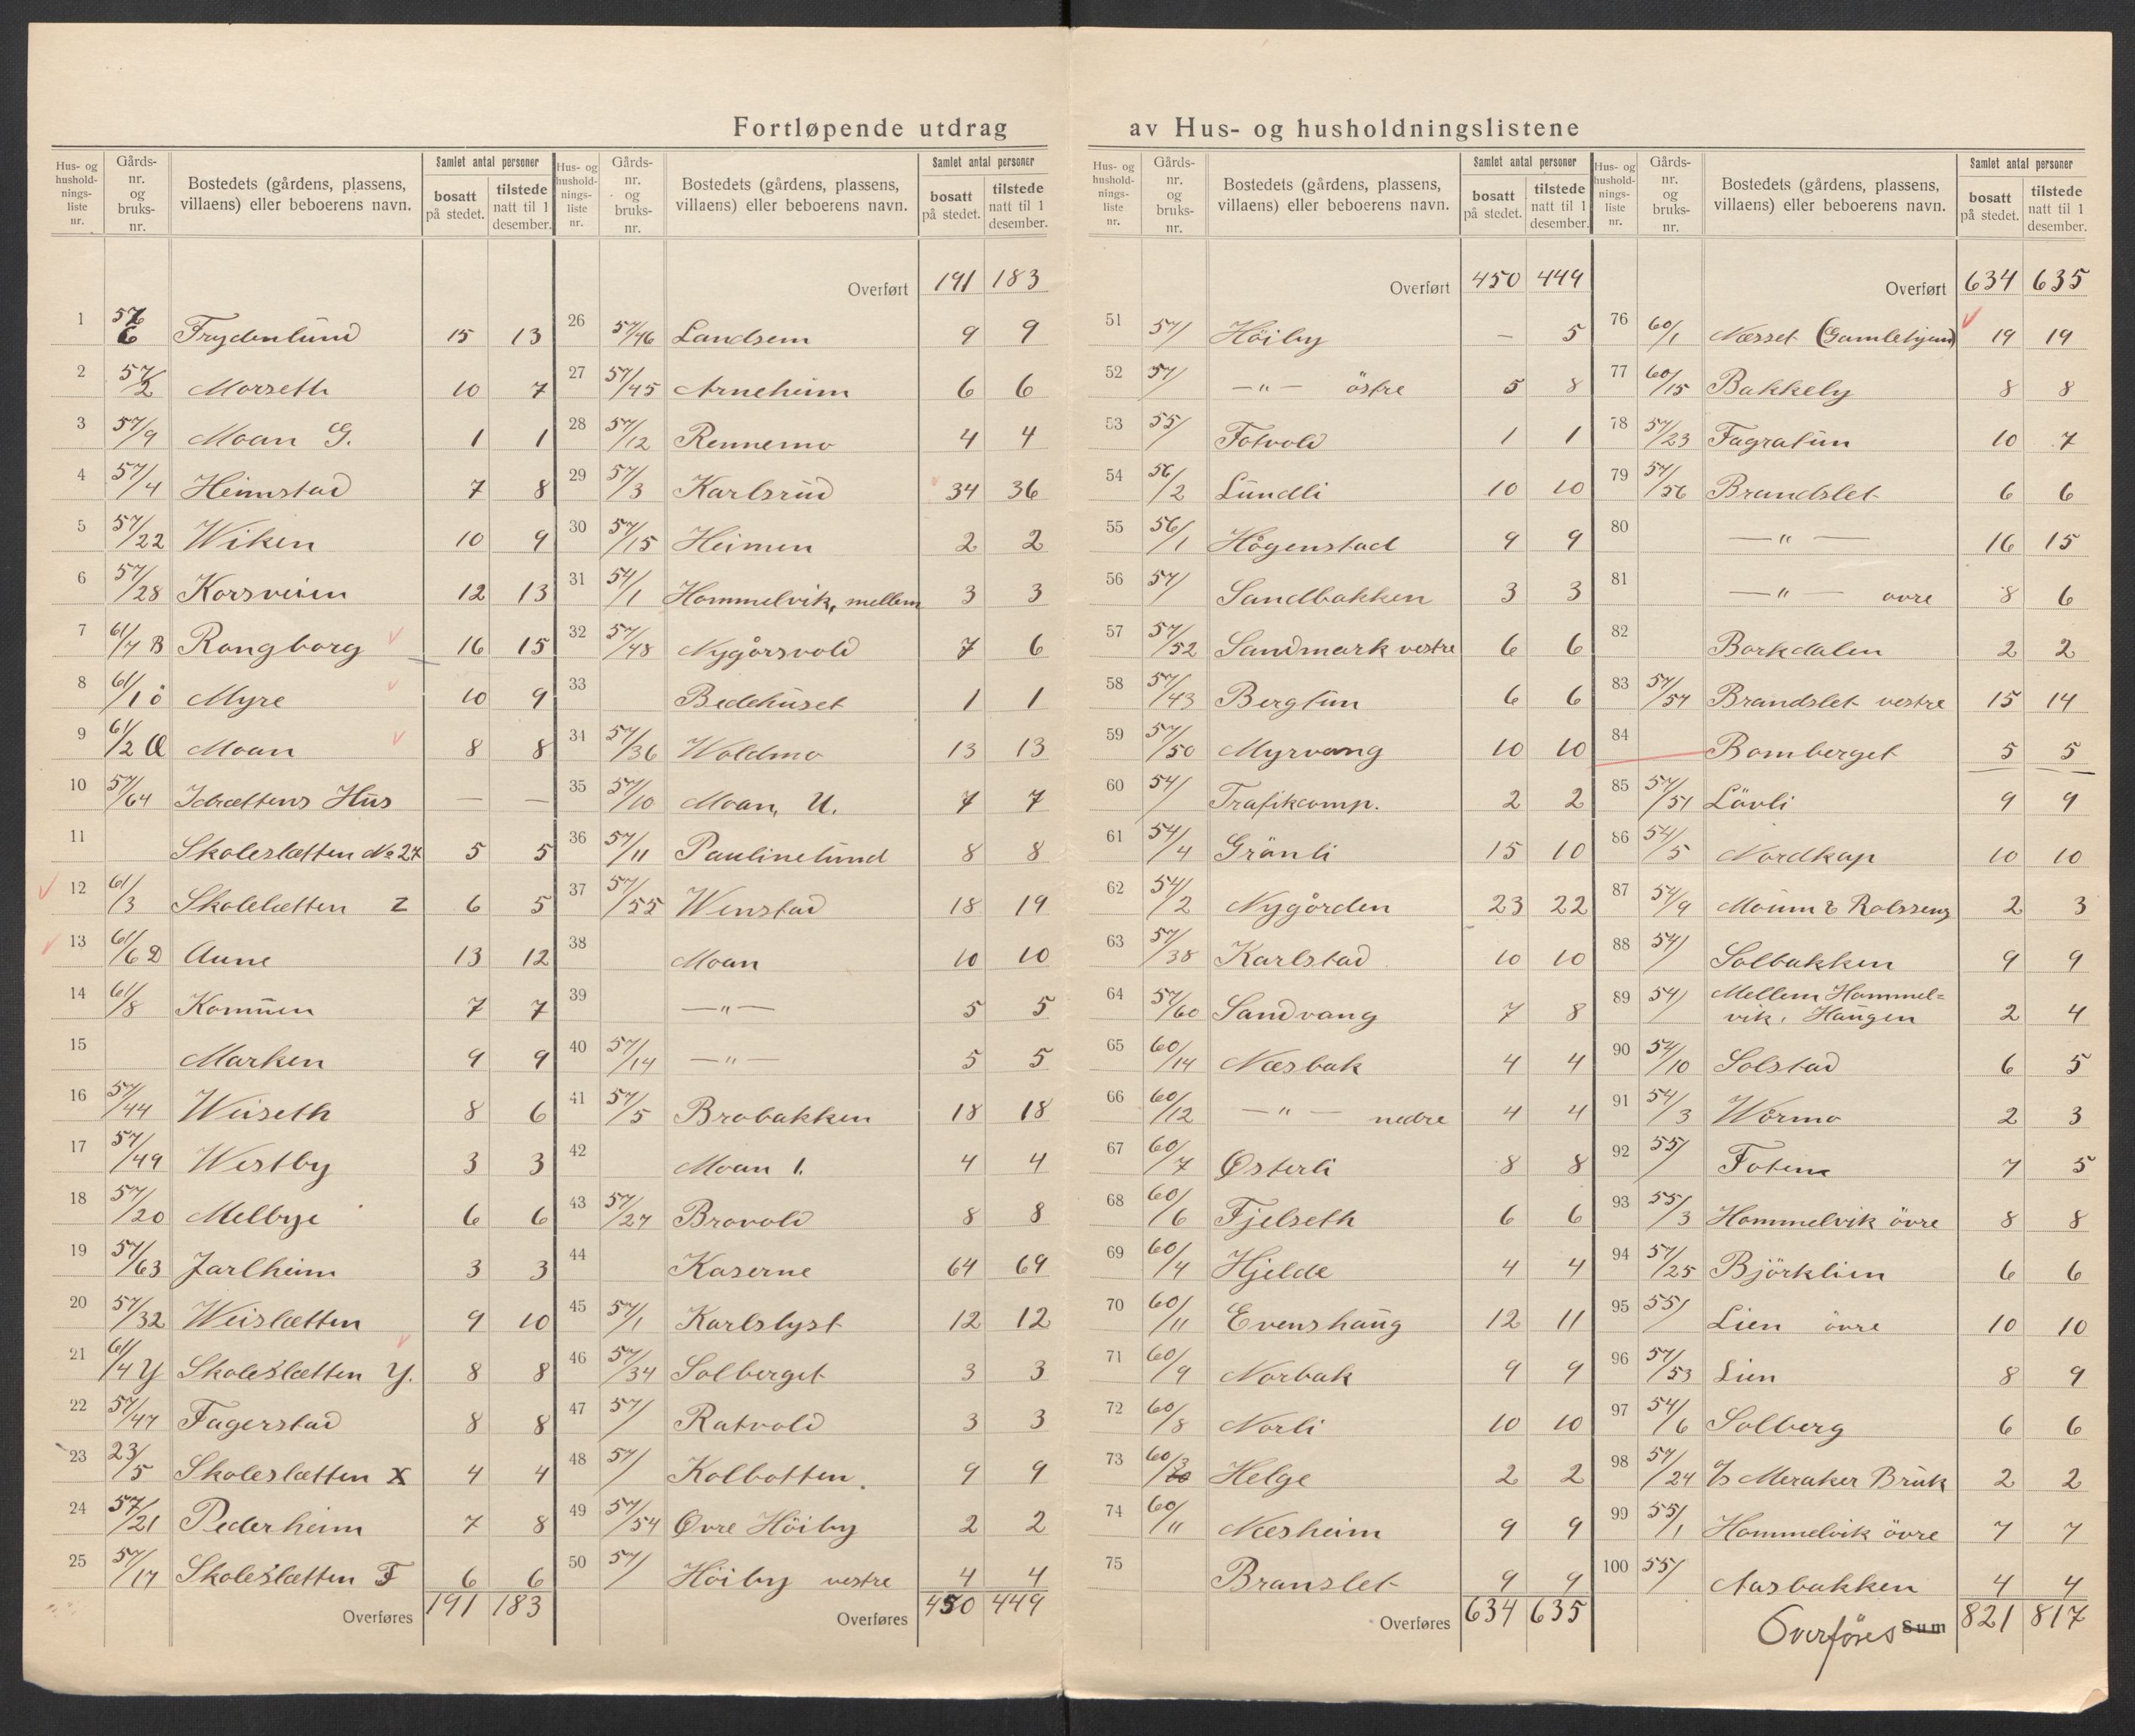 Fortløpende utdrag av Hus- og husholdningslistene
Hus- og husholdnings- liste nr. Gårds- nr. og bruks- nr. Bostedets (gårdens, plassens, villaens) eller beboerens navn. Samlet antal personer bosatt på stedet. tilstede natt til 1 desember.
1 57/6 Frydenlund 15 13
2 57/2 Morseth 10 7
3 57/9 Moan G. 1 1
4 57/4 Heimstad 7 8
5 57/22 Wiken 10 9
6 57/28 Korsveien 12 13
7 61/7 B Rangborg 16 15
8 61/1 ö Myre 10 9
9 61/2 Æ Moan 8 8
10 57/64 Idrættens Hus — —
11 Skoleslætten No 27 5 5
12 61/3 Skolelætten Z 6 5
13 61/6 D Aune 13 12
14 61/8 Komüen 7 7
15 Marken 9 9
16 57/44 Weiseth 8 6
17 57/49 Westby 3 3
18 57/20 Melbye 6 6
19 57/63 Jarlheim 3 3
20 57/32 Weislætten 9 10
21 61/4 Y Skoleslætten Y. 8 8
22 57/47 Fagerstad 8 8
23 23/5 Skoleslætten X 4 4
24 57/21 Pederheim 7 8
25 57/17 Skoleslætten F 6 6
Overføres 191 183
Hus- og husholdnings- liste nr. Gårds- nr. og bruks- nr. Bostedets (gårdens, plassens, villaens) eller beboerens navn. Samlet antal personer bosatt på stedet. tilstede natt til 1 desember.
Overført 191 183
26 57/46 Landsem 9 9
27 57/45 Arneheim 6 6
28 57/12 Rennemo 4 4
29 57/3 Karlsrud 34 36
30 57/15 Heimen 2 2
31 54/1 Hommelvik, mellem 3 3
32 57/48 Nygårsvold 7 6
33 Bedehuset 1 1
31 57/36 Woldmo 13 13
35 57/10 Moan, U. 7 7
36 57/11 Paulinelund 8 8
37 57/55 Wenstad 18 19
38 Moan 10 10
39 —"— 5 5
40 57/14 —"— 5 5
41 57/5 Brobakken 18 18
42 Moan 1. 4 4
43 57/27 Brovold 8 8
44 Kaserne 64 69
45 57/1 Karlslyst 12 12
46 57/34 Solberget 3 3
47 57/ Ratvold 3 3
48 57/ Kolbotten. 9 9
49 57/54 Øvre Höiby 2 2
50 57/ Höiby vestre 4 4
Overføres 450 449
Hus- og husholdnings- liste nr. Gårds- nr. og bruks- nr. Bostedets (gårdens, plassens, villaens) eller beboerens navn. Samlet antal personer bosatt på stedet. tilstede natt til 1 desember.
Overført 450 449
51 57/ Höiby — 5
52 57/ —"— östre 5 8
53 55/ Fotvold 1 1
54 56/2 Lundli 10 10
55 56/1 Högenstad 9 9
56 57/ Sandbakken 3 3
57 57/52 Sandmark vestre 6 6
58 57/43 Bergtun 6 6
59 57/50 Myrvang 10 10
60 54/ Trafikcomp. 2 2
61 54/4 Grönli 15 10
62 54/2 Nygården 23 22
63 57/38 Karlstad 10 10
64 57/60 Sandvang 7 8
65 60/14 Næsbak 4 4
66 60/12 —"— nedre 4 4
67 60/7 Østerli 8 8
68 60/6 Fjelseth 6 6
69 60/4 Hjelde 4 4
70 60/11 Evenshaug 12 11
71 60/9 Norbak 9 9
72 60/8 Norli 10 10
73 60/3 Helge 2 2
74 60/11 Næsheim 9 9
75 Branslet 9 9
Overføres 634 635
Hus- og husholdnings- liste nr. Gårds- nr. og bruks- nr. Bostedets (gårdens, plassens, villaens) eller beboerens navn. Samlet antal personer bosatt på stedet. tilstede natt til 1 desember.
Overført 634 635
76 60/1 Næsset (Gamlehjem) 19 19
77 60/15 Bakkely 8 8
78 57/23 Fagratun 10 7
79 57/56 Brandslet 6 6
80 —"— 16 15
81 —"— øvre 8 6
82 Borkdalen 2 2
83 57/57 Brandslet vestre 15 14
84 Bomberget 5 5
85 57/51 Lövli 9 9
86 54/5 Nordkap 10 10
87 54/9 Moum & Rolssens 2 3
88 54/ Solbakken 9 9
89 54/ Mellem Hommel=
vik, Haugen 2 4
90 54/10 Solstad 6 5
91 54/3 Wörmo 2 3
92 55/ Foten 7 5
93 55/3 Hommelvik övre 8 8
94 57/25 Björklien 6 6
95 55/ Lien övre 10 10
96 57/53 Lien 8 9
97 54/6 Solberg 6 6
98 57/24 A/S Meraker Bruk 2 2
99 55/1 Hommelvik övre 7 7
100 55/ Aasbakken 4 4
Overföres Sum 821 817